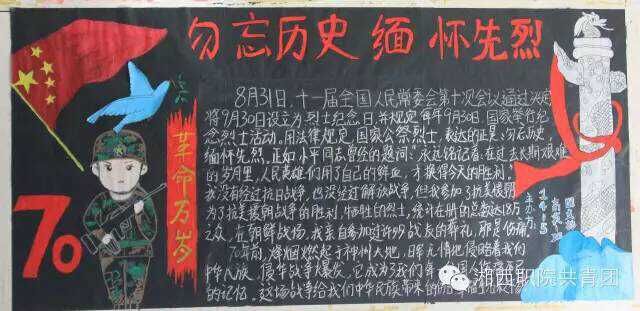 勿忘历史 缅怀先烈
8月31日，十一届全国人民常委会第十次会议通过决定
将9月30日设立为烈士纪念日，并规定每年9月30日，国家举行纪
念烈士活动。用法律规定，国家公祭烈士，表达的正是：勿忘历史，
缅怀先烈。正如小平同志曾经的题词？永远铭记着，在过去长期艰难
的岁月里，人民英雄们用了自己的鲜血，才换得今天的胜利。
我没有经过抗日战争，也没经过解放战争，但我参加了抗美援朝
为了抗美援朝战争的胜利，牺牲的烈士，统计在册的总数达18万
之众，在朝鲜战场，我亲自参加过许多战友的葬礼，那是伤痛
70年前，烽烟燃起于神州大地，日军无情地侵略着我们
中华民族，侵华战争爆发，它成为了我们每
的记忆。这场战争给我们中华民族带来的
革命万岁
70
主办方：
湘西职院共青团